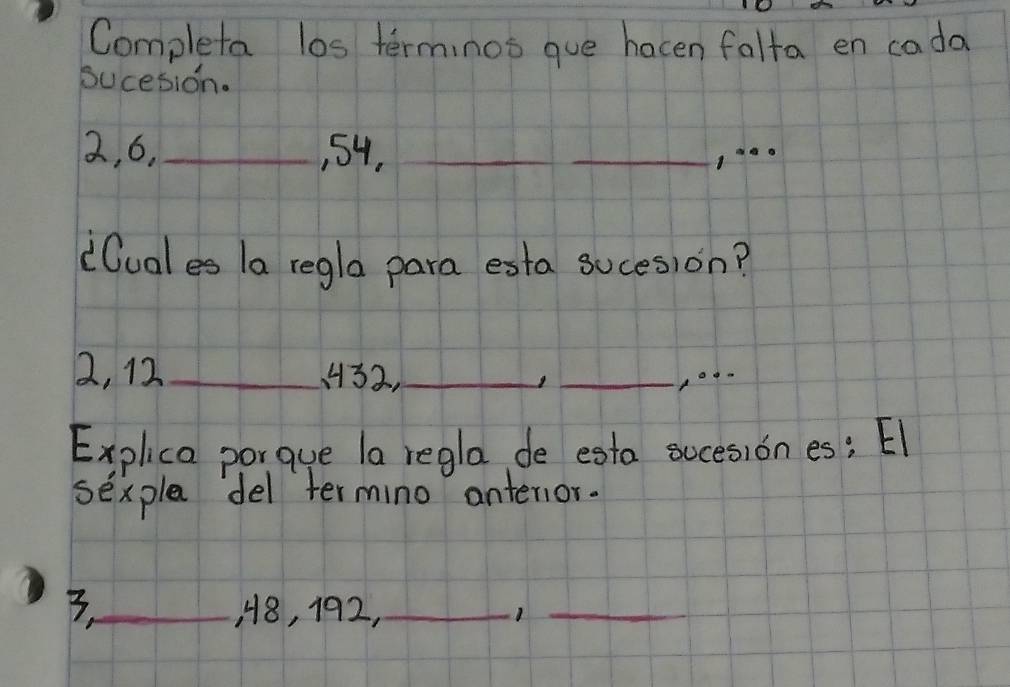 Completa los términos que hacen falta en cada
sucesión.
2, 6, ______, 54, ______ ______, ...
¿Cual es la regla para esta sucesión?
2, 12 ______, 432, ______, ______, ...
Explica porque la regla de esta sucesión es: El
séxple del termino anterior.
3, ______, 48, 192, ______, ______